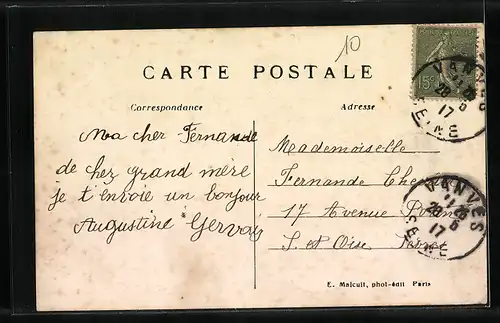 10
CARTE POSTALE
Correspondance
Adresse
15c
VANVES
28 5
17
SEINE
Ma cher Fernande
de chez grand mère
je t'envoie un bonjour
Augustine Gervais
Mademoiselle
Fernande
17 Avenue
S. et Oise
VANVES
28 5
17
SEINE
E. Malcuit, phot-édit Paris